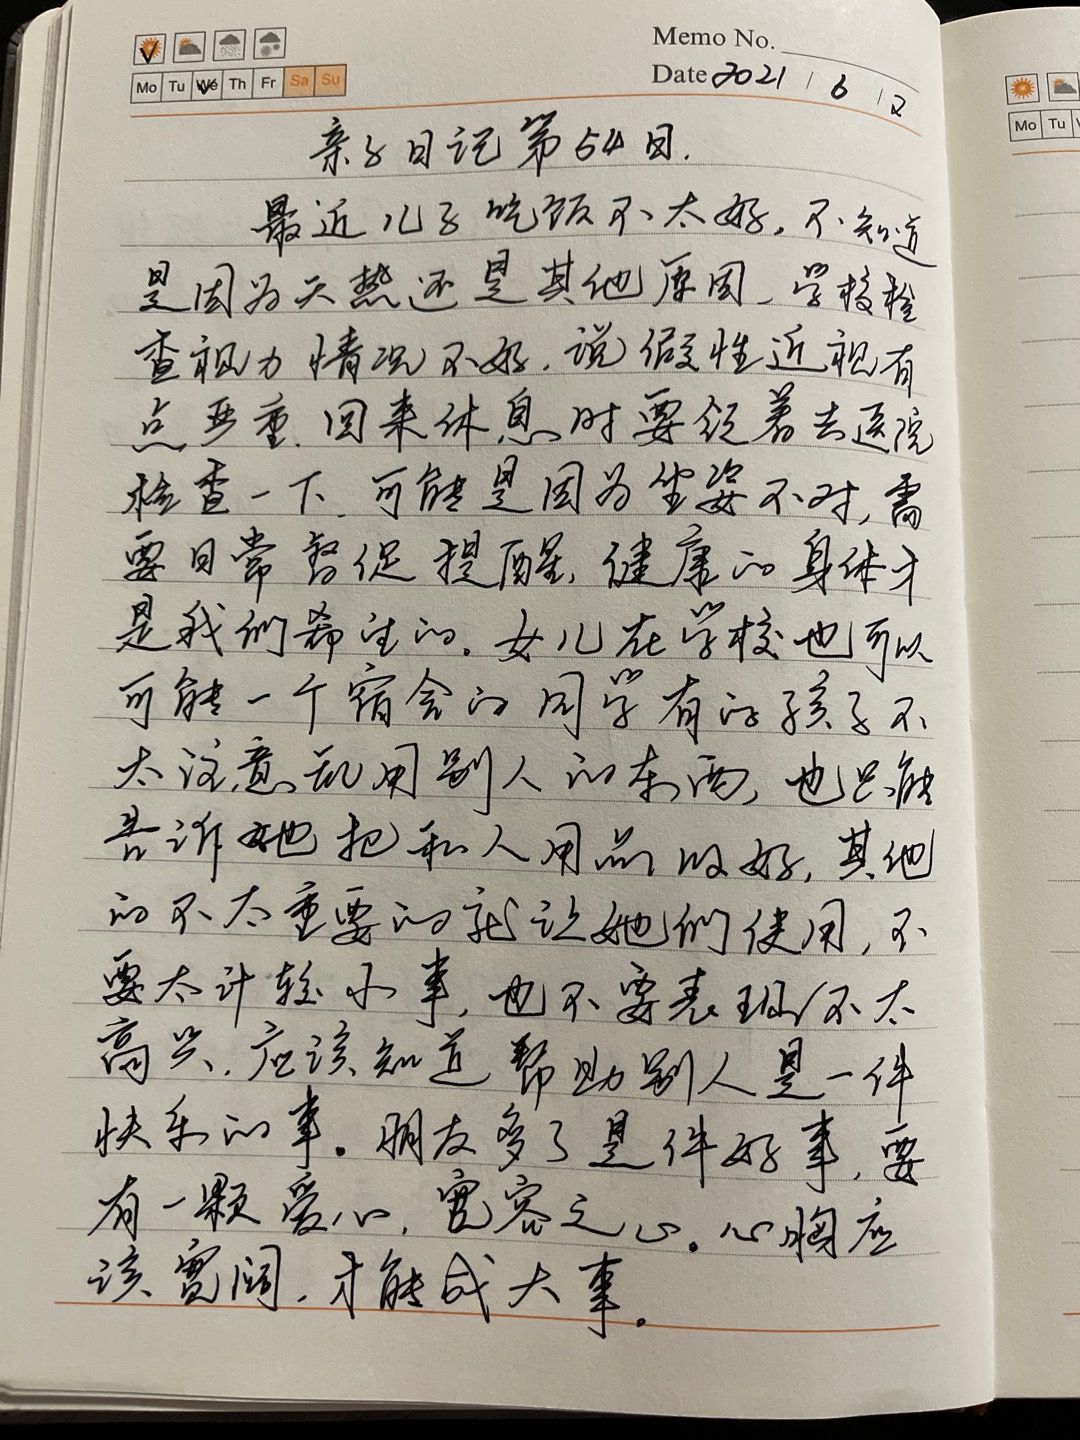 Memo No.
Mo Tu We Th Fr Sa Su
Date 2021 / 6 / 2
亲子日记第54日.
最近儿子吃饭不太好,不知道
是因为天热还是其他原因,学校检
查视力情况不好,说假性近视有
点严重.回来休息时要领着去医院
检查一下.可能是因为坐姿不对,需
要日常督促提醒,健康的身体才
是我们希望的。女儿在学校也可以
可能一个宿舍的同学有的孩子不
太注意乱用别人的东西,也只能
告诉她把私人用品收好,其他
的不太重要的就让她们使用,不
要太计较小事,也不要表现不太
高兴.应该知道帮助别人是一件
快乐的事。朋友多了是件好事,要
有一颗爱心,宽容之心。心胸应
该宽阔,才能成大事。
Mo Tu